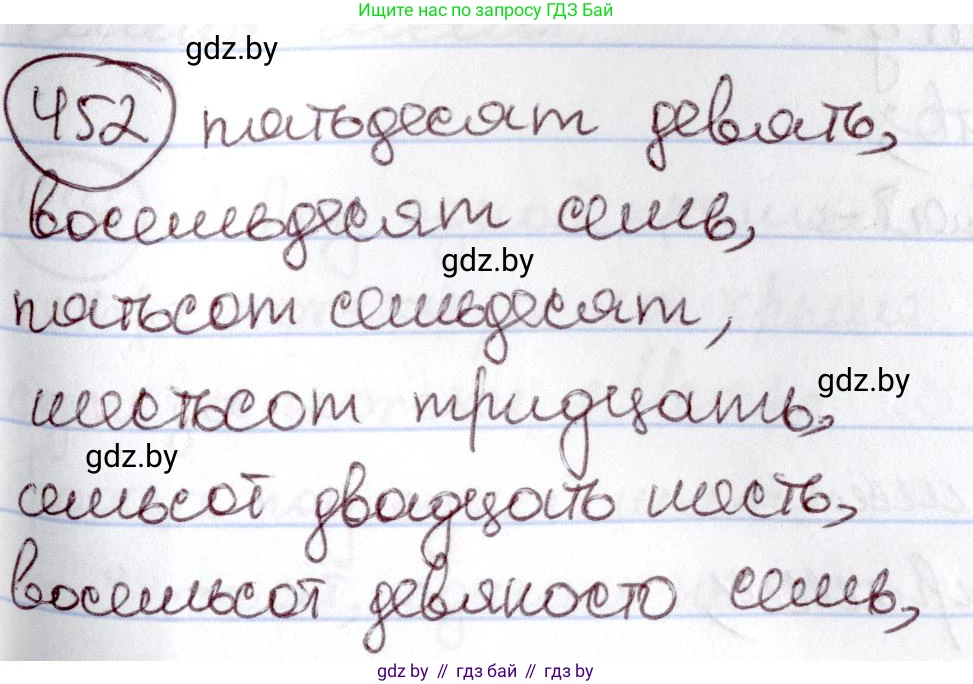 Ищите нас по запросу ГДЗ Бай
gdz.by
452 пятьдесят девять,
восемьдесят семь,
gdz.by
пятьсот семьдесят,
gdz.by
шестьсот тридцать,
gdz.by
семьсот двадцать шесть,
восемьсот девяносто семь,
gdz.by // гдз бай // гдз by